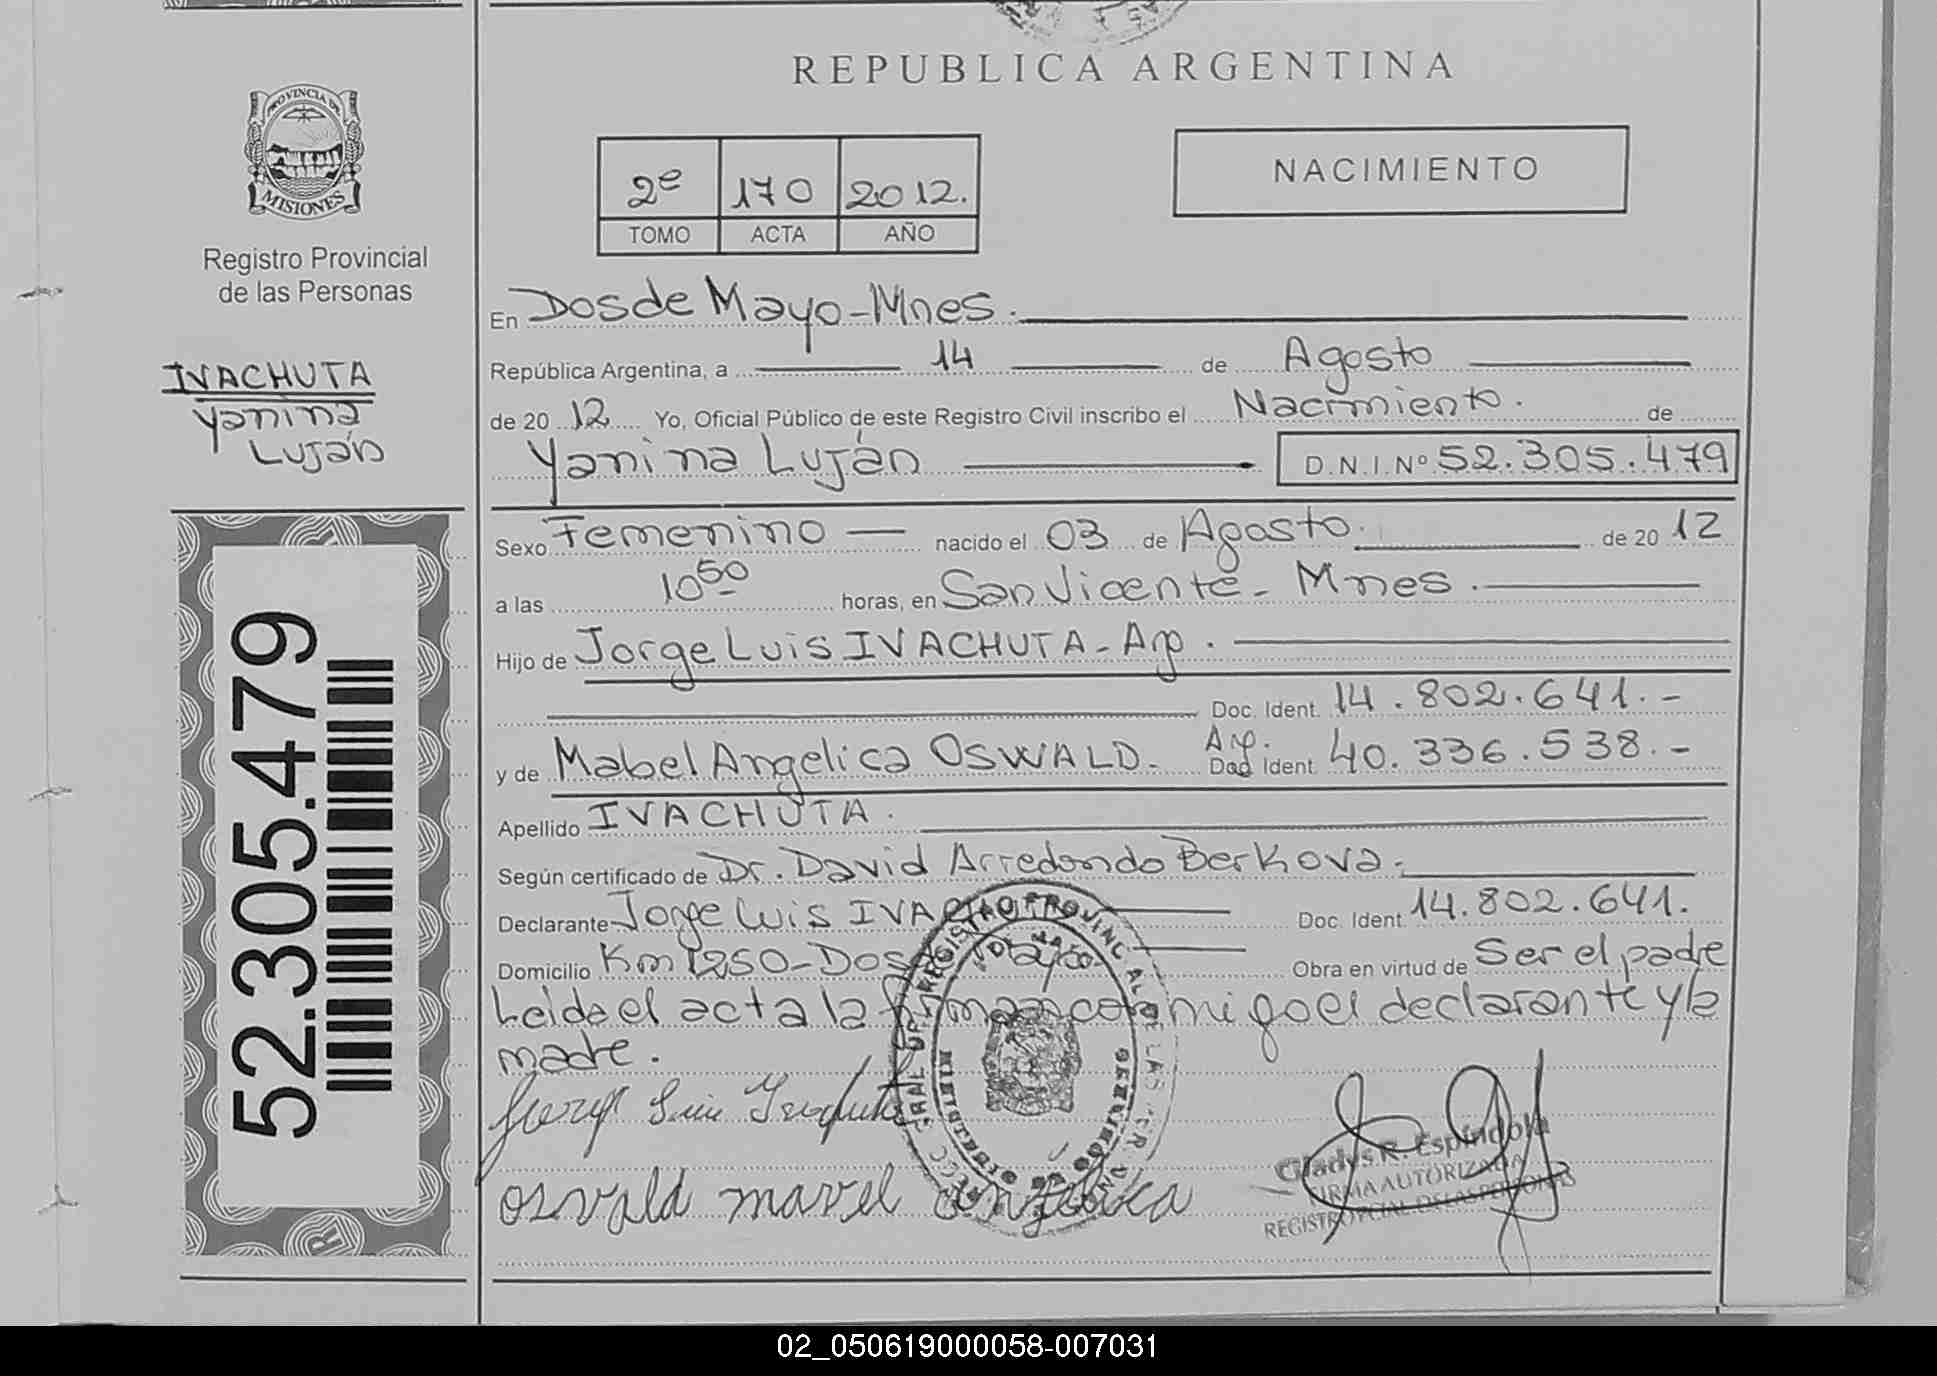 REPUBLICA ARGENTINA
PROVINCIA DE
MISIONES
Registro Provincial
de las Personas
IVACHUTA
Yanina
Luján
52.305.479
2º 170 2012.
TOMO ACTA AÑO
NACIMIENTO
En Dos de Mayo-Mnes.
República Argentina, a 14 de Agosto
de 20 12 Yo, Oficial Público de este Registro Civil inscribo el Nacimiento. de
Yanina Luján D.N.I.Nº 52.305.479
Sexo Femenino — nacido el 03 de Agosto. de 20 12
a las 10 50 horas, en San Vicente - Mnes.
Hijo de Jorge Luis IVACHUTA - Arg.
Doc. Ident. 14.802.641.-
y de Mabel Angelica OSWALD. Arg. Doc. Ident. 40.336.538.-
Apellido IVACHUTA.
Según certificado de Dr. David Arredondo Berkova.
Declarante Jorge Luis IVACHUTA Doc. Ident. 14.802.641.
Domicilio Km 1250-Dos de Mayo- Obra en virtud de Ser el padre
Leida el acta la firman conmigo el declarante y la
madre.
osvald mavel anjelica
Gladys R. Espíndola
FIRMA AUTORIZADA
REGISTRO PCIAL DE LAS PERSONAS
02_050619000058-007031